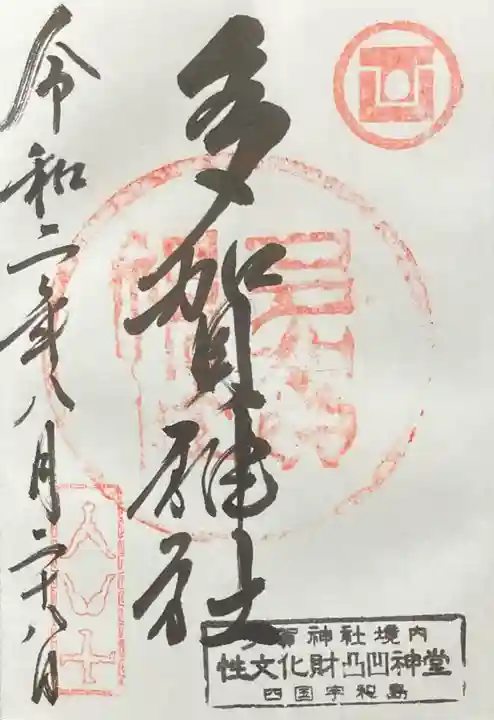 多賀神社
令和二年八月二十八日
賀神社境内
性文化財凸凹神堂
四国宇和島